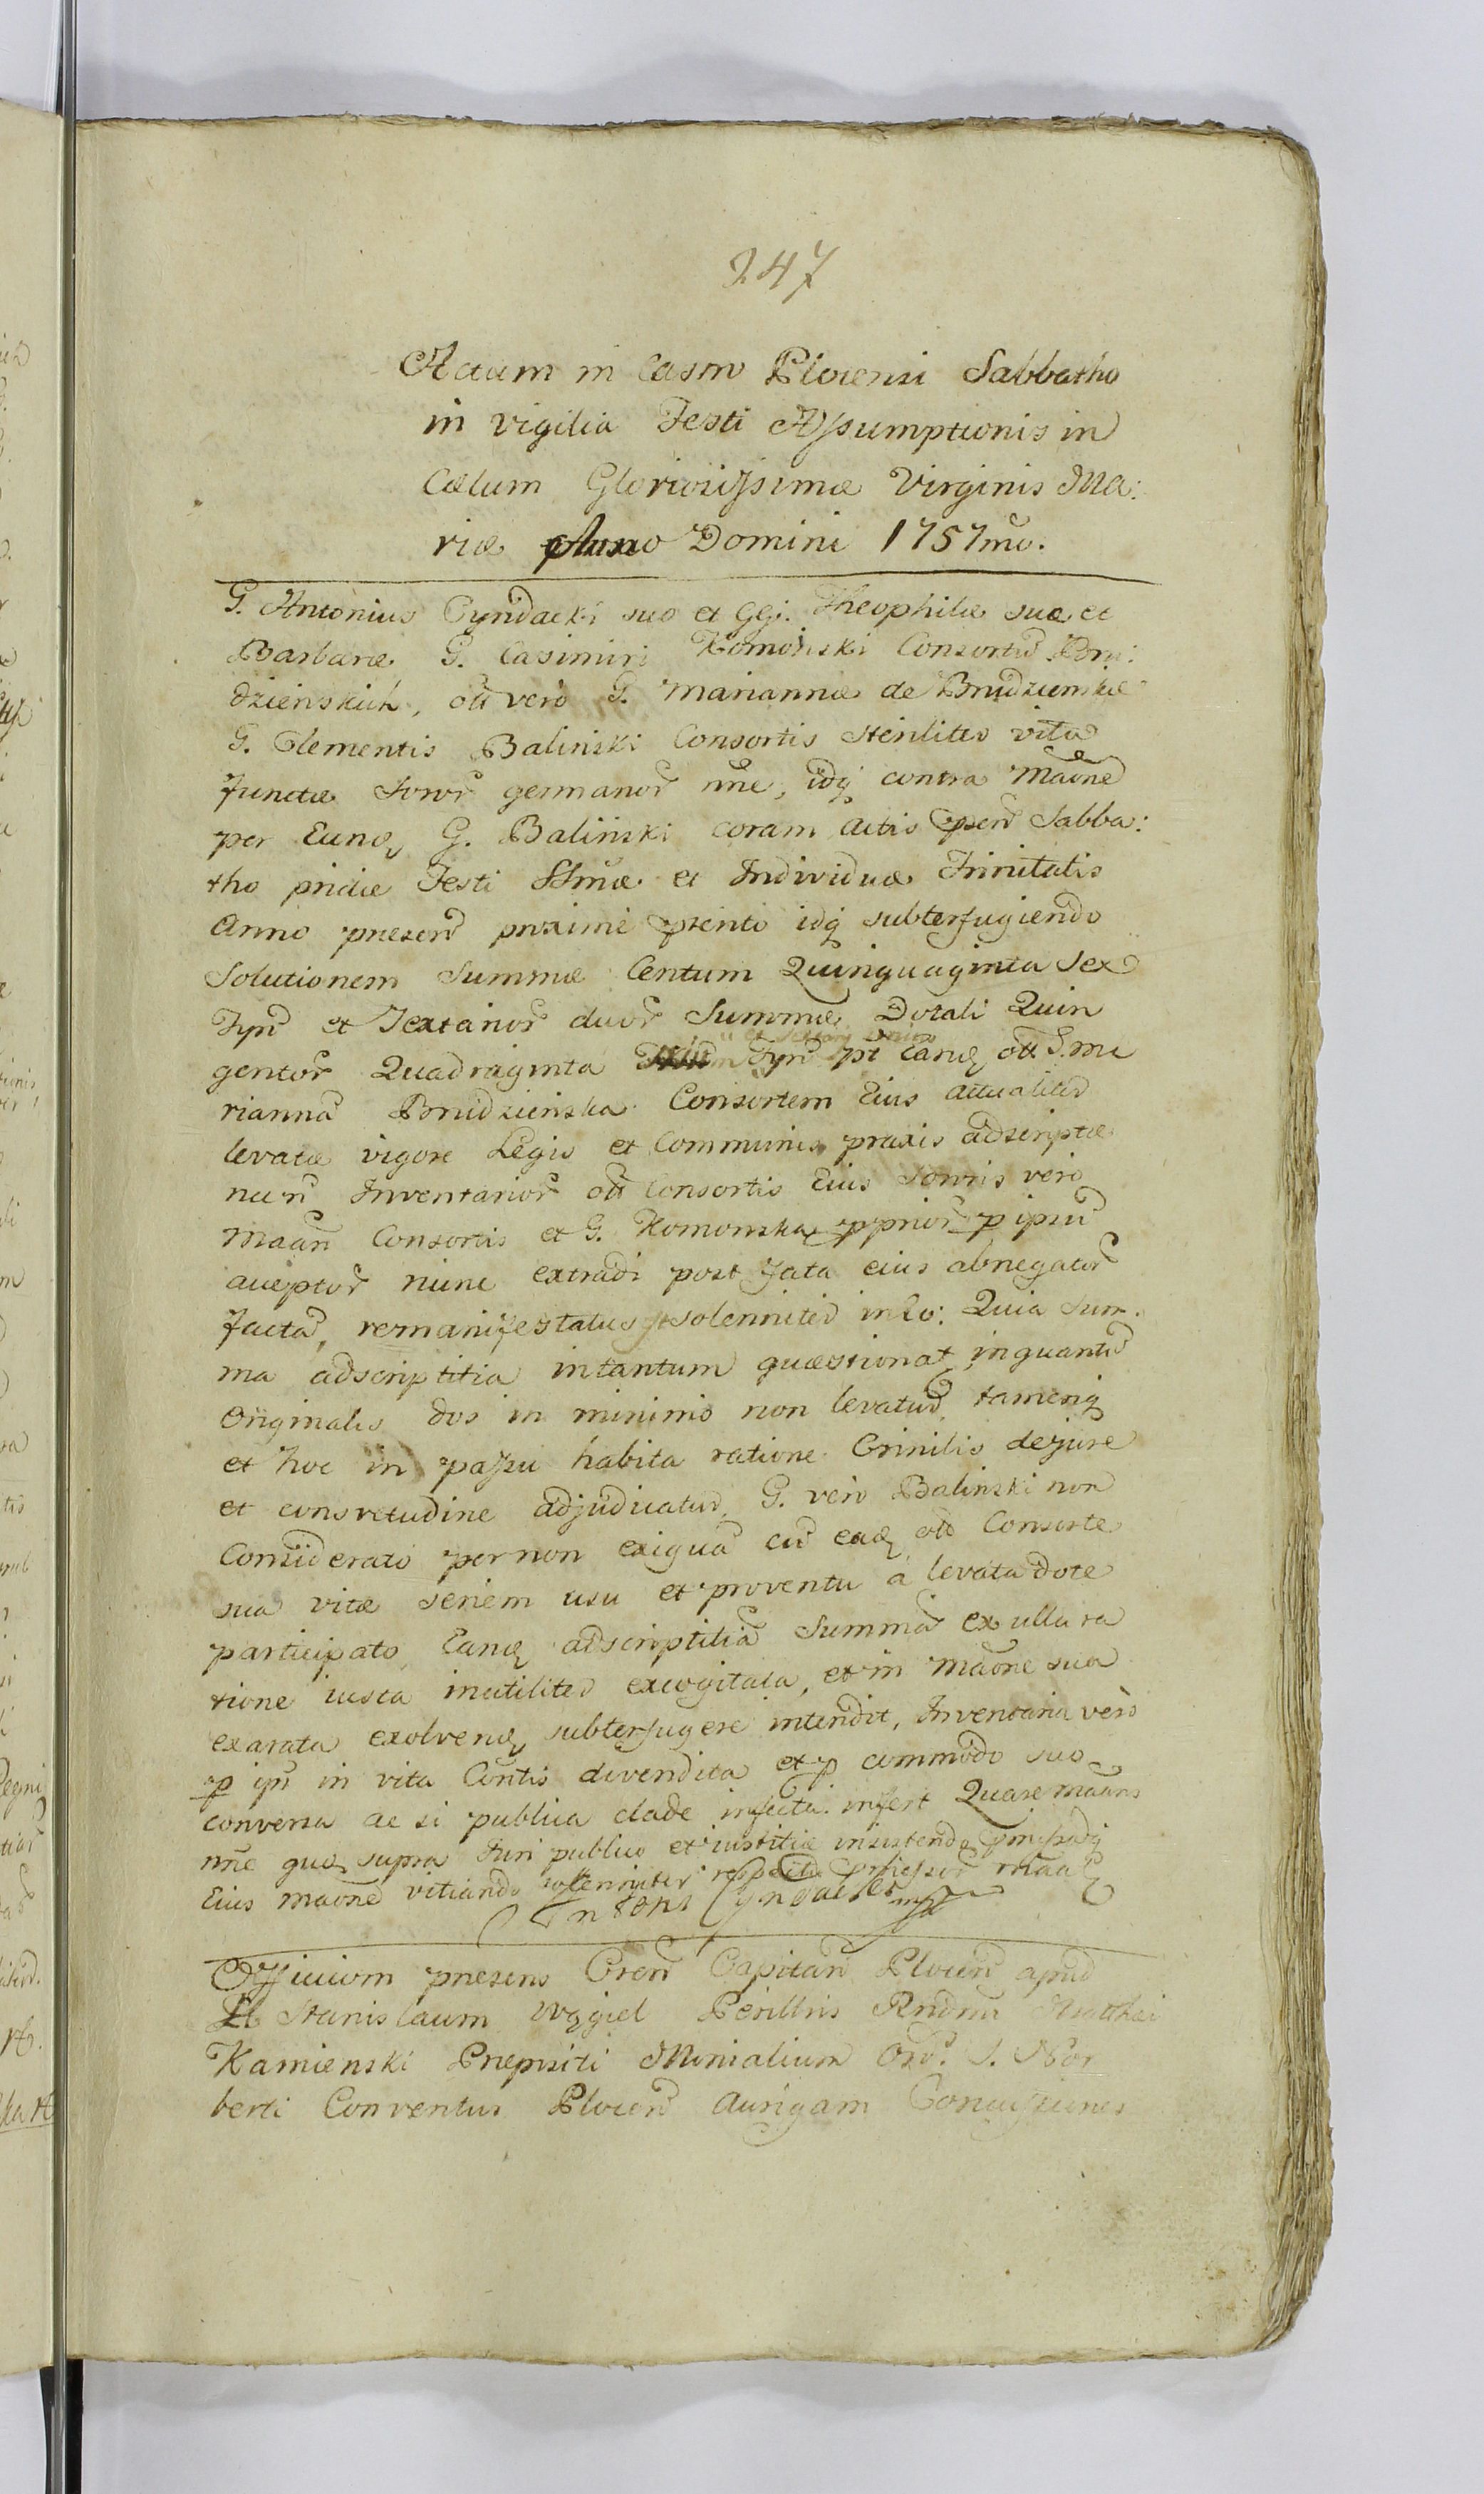 247
Actum in Castro Plocensi Sabbatho
in vigilia Festi Assumptionis in
Cælum Gloriosissimæ Virginis Ma:
riæ Anno Domini 1757mo.
G. Antonius Cyndacki suo et GG. Theophilæ suæ et
Barbaræ G. Casimiri Komoński Consortũ Bru:
dzieńskich, olt vero G. Mariannæ de Brudzienskie
G. Clementis Baliński Consortis steriliter vita
functæ Soror germanor nne, idq contra Maõne
per Eund G. Baliński coram Actis psen Sabba:
tho pridie Festi SSmæ et Individuæ Trinitatis
Anno presen proxime pterito idq subterfugiendo
Solutionem Summæ Centum Quinquaginta Sex
Fpn et Sextanor duor Summæ Dotali Quin
et
gentor Quadraginta Fpn pr Eand olt G. Ma
riannã Brudzieńska Consortem Eius actualiter
levatæ vigore Legis et Communis praxis adscriptæ
nec n Inventarior olt Consortis Eius Sororis vero
Maan Consortis et G. Komonska pprior p ipsũ
acceptor nunc extradi post fata eius abnegator
facta, remanifestatus e solenniter in Eo: Quia Sum.
ma adscriptitia intantum quæstionat, inquantũ
Originalis dos in minimo non levatur, tamenq
et hoc in passu habita ratione Crinilis de jure
et consvetudine adjudicatur, G. vero Balinski non
Considerato per non exiguã cũ ead olt Consorte
sua vitæ seriem usu et proventu a levata dote
participato, Eand adscriptitiã Summã ex ulla ra
tione iusta inutiliter excogitata, et in Maõne sua
exarata exolvend subterfugere intendit, Inventaria vero
p ipn in vita Contis divendita et p commodo suo
conversa ac si publica clade infecta infert Quare Maans
nne quo supra Juri publico et iustitiæ insistendo
Eius maõne vitiando solenniter
Antoni Cyndacki mp
Officium presens Cren Capitan Plocen apud
Stanislaum Węgiel Perillris Rndmi Matthæi
Kamienski Prepositi Monialium Ord. S. Nor
berti Conventus Plocen Aurigam Concussiones